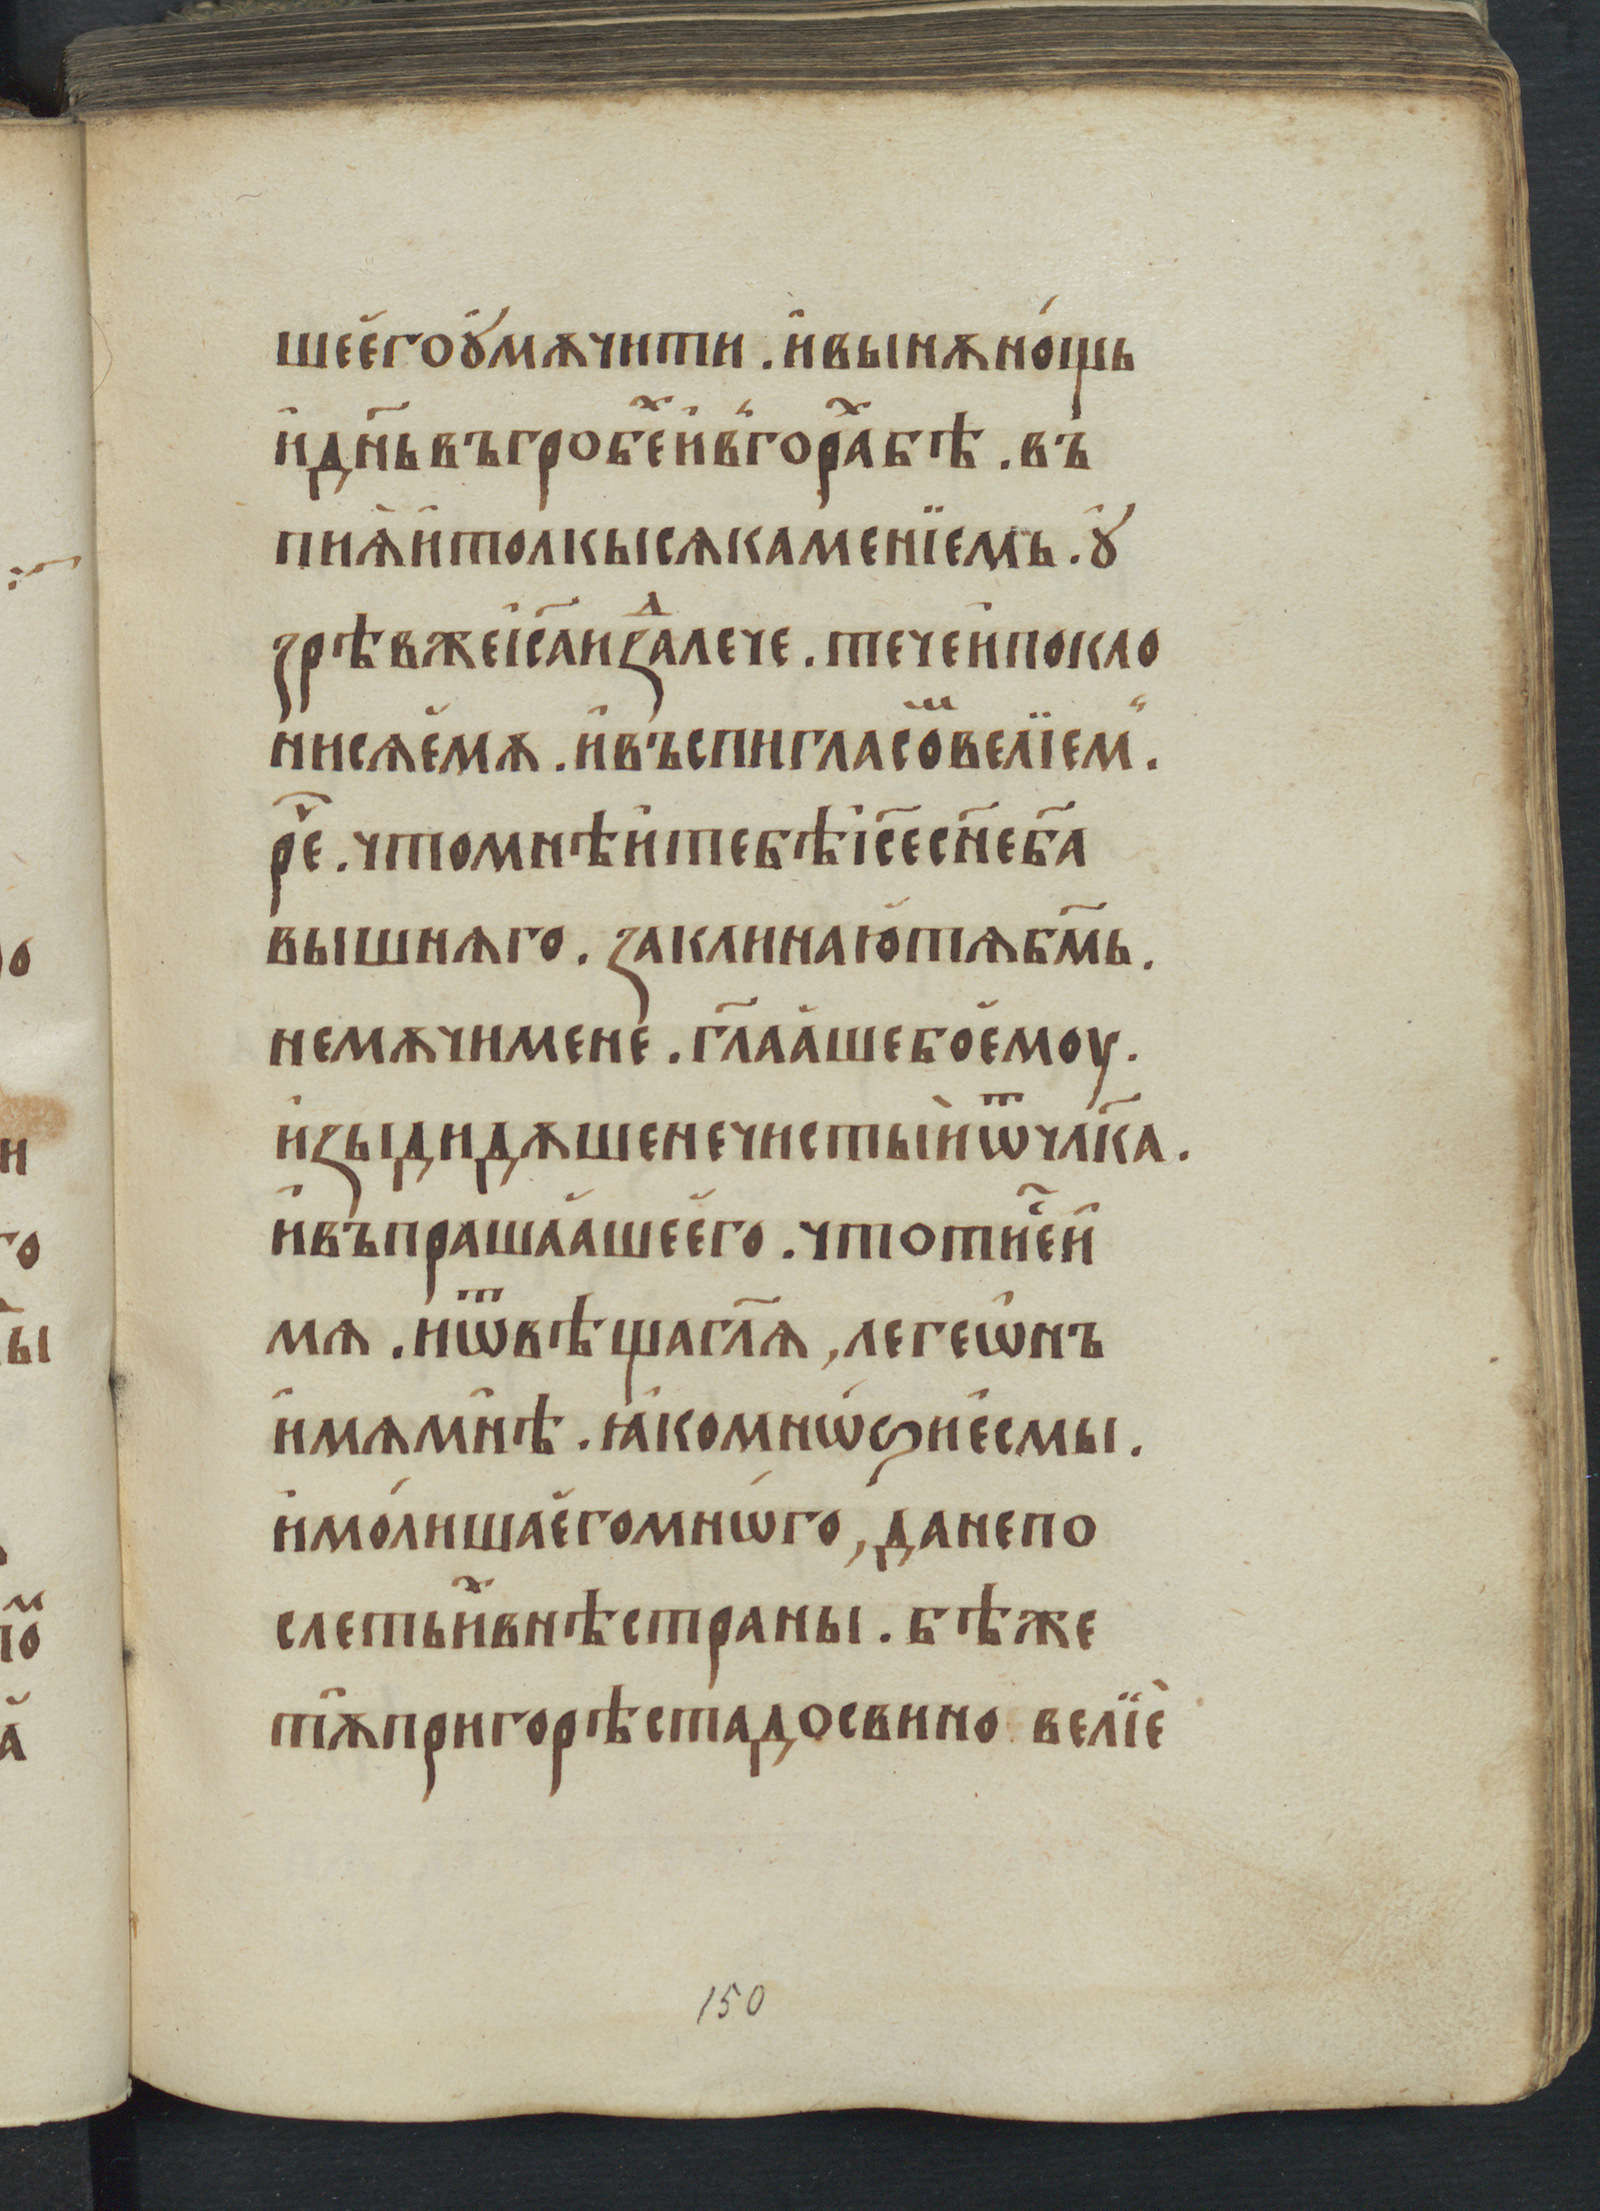 шеĕго̑ꙋмѫчити . и҆вынѫно́щь
и҆дн҃ьвъгробⷯеи҆в҆горⷯабѣ . въ
пиѫ̀и҆толкыисѧкаменїемь . ꙋ҆
ꙁрѣвжеі҆с҃аиꙁⷣалече . течеи҆покло
нисѧе҆мѫ . и҆въспигласоⷨвелїем̾ .
рⷱ҇е . чтомнѣи҆тебѣі҆с҃есн҃еб҃а
вышнѧго . ꙁаклинаю҆тѧбм҃ь .
немѫчимене . гл҃аа҆шебое҆моу .
иꙁыдидꙋшенечистыѝѿчлк҃а .
и҆въпрашаа҆шеего . чтотиⷭ҇еи҆
мѧ . иѿвѣщагл҃ѧ , легеѡ҆нъ
и҆мѧмнѣ . ꙗ҆комнѡѕие҆смы .
и҆мо́лишае҆гомнѡ́го , данепо
слетьиⷯвнѣстраны . бѣже
тꙋ҆пригорѣстадосвино велїѐ
150